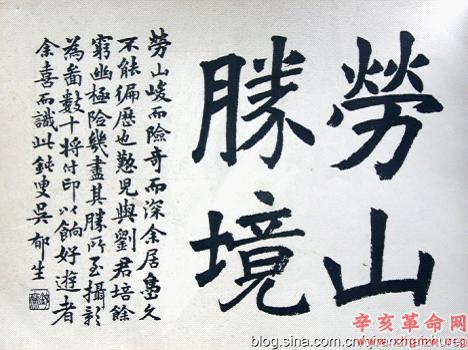 勞山
勝境
勞山峻而險奇而深余居島久
不能徧歷也懃児與劉君培餘
窮幽極險幾盡其勝所至攝影
為啚數十將付印以餉好遊者
余喜而識此鈍叟吳郁生
辛亥革命网
blog.sina.com.cn